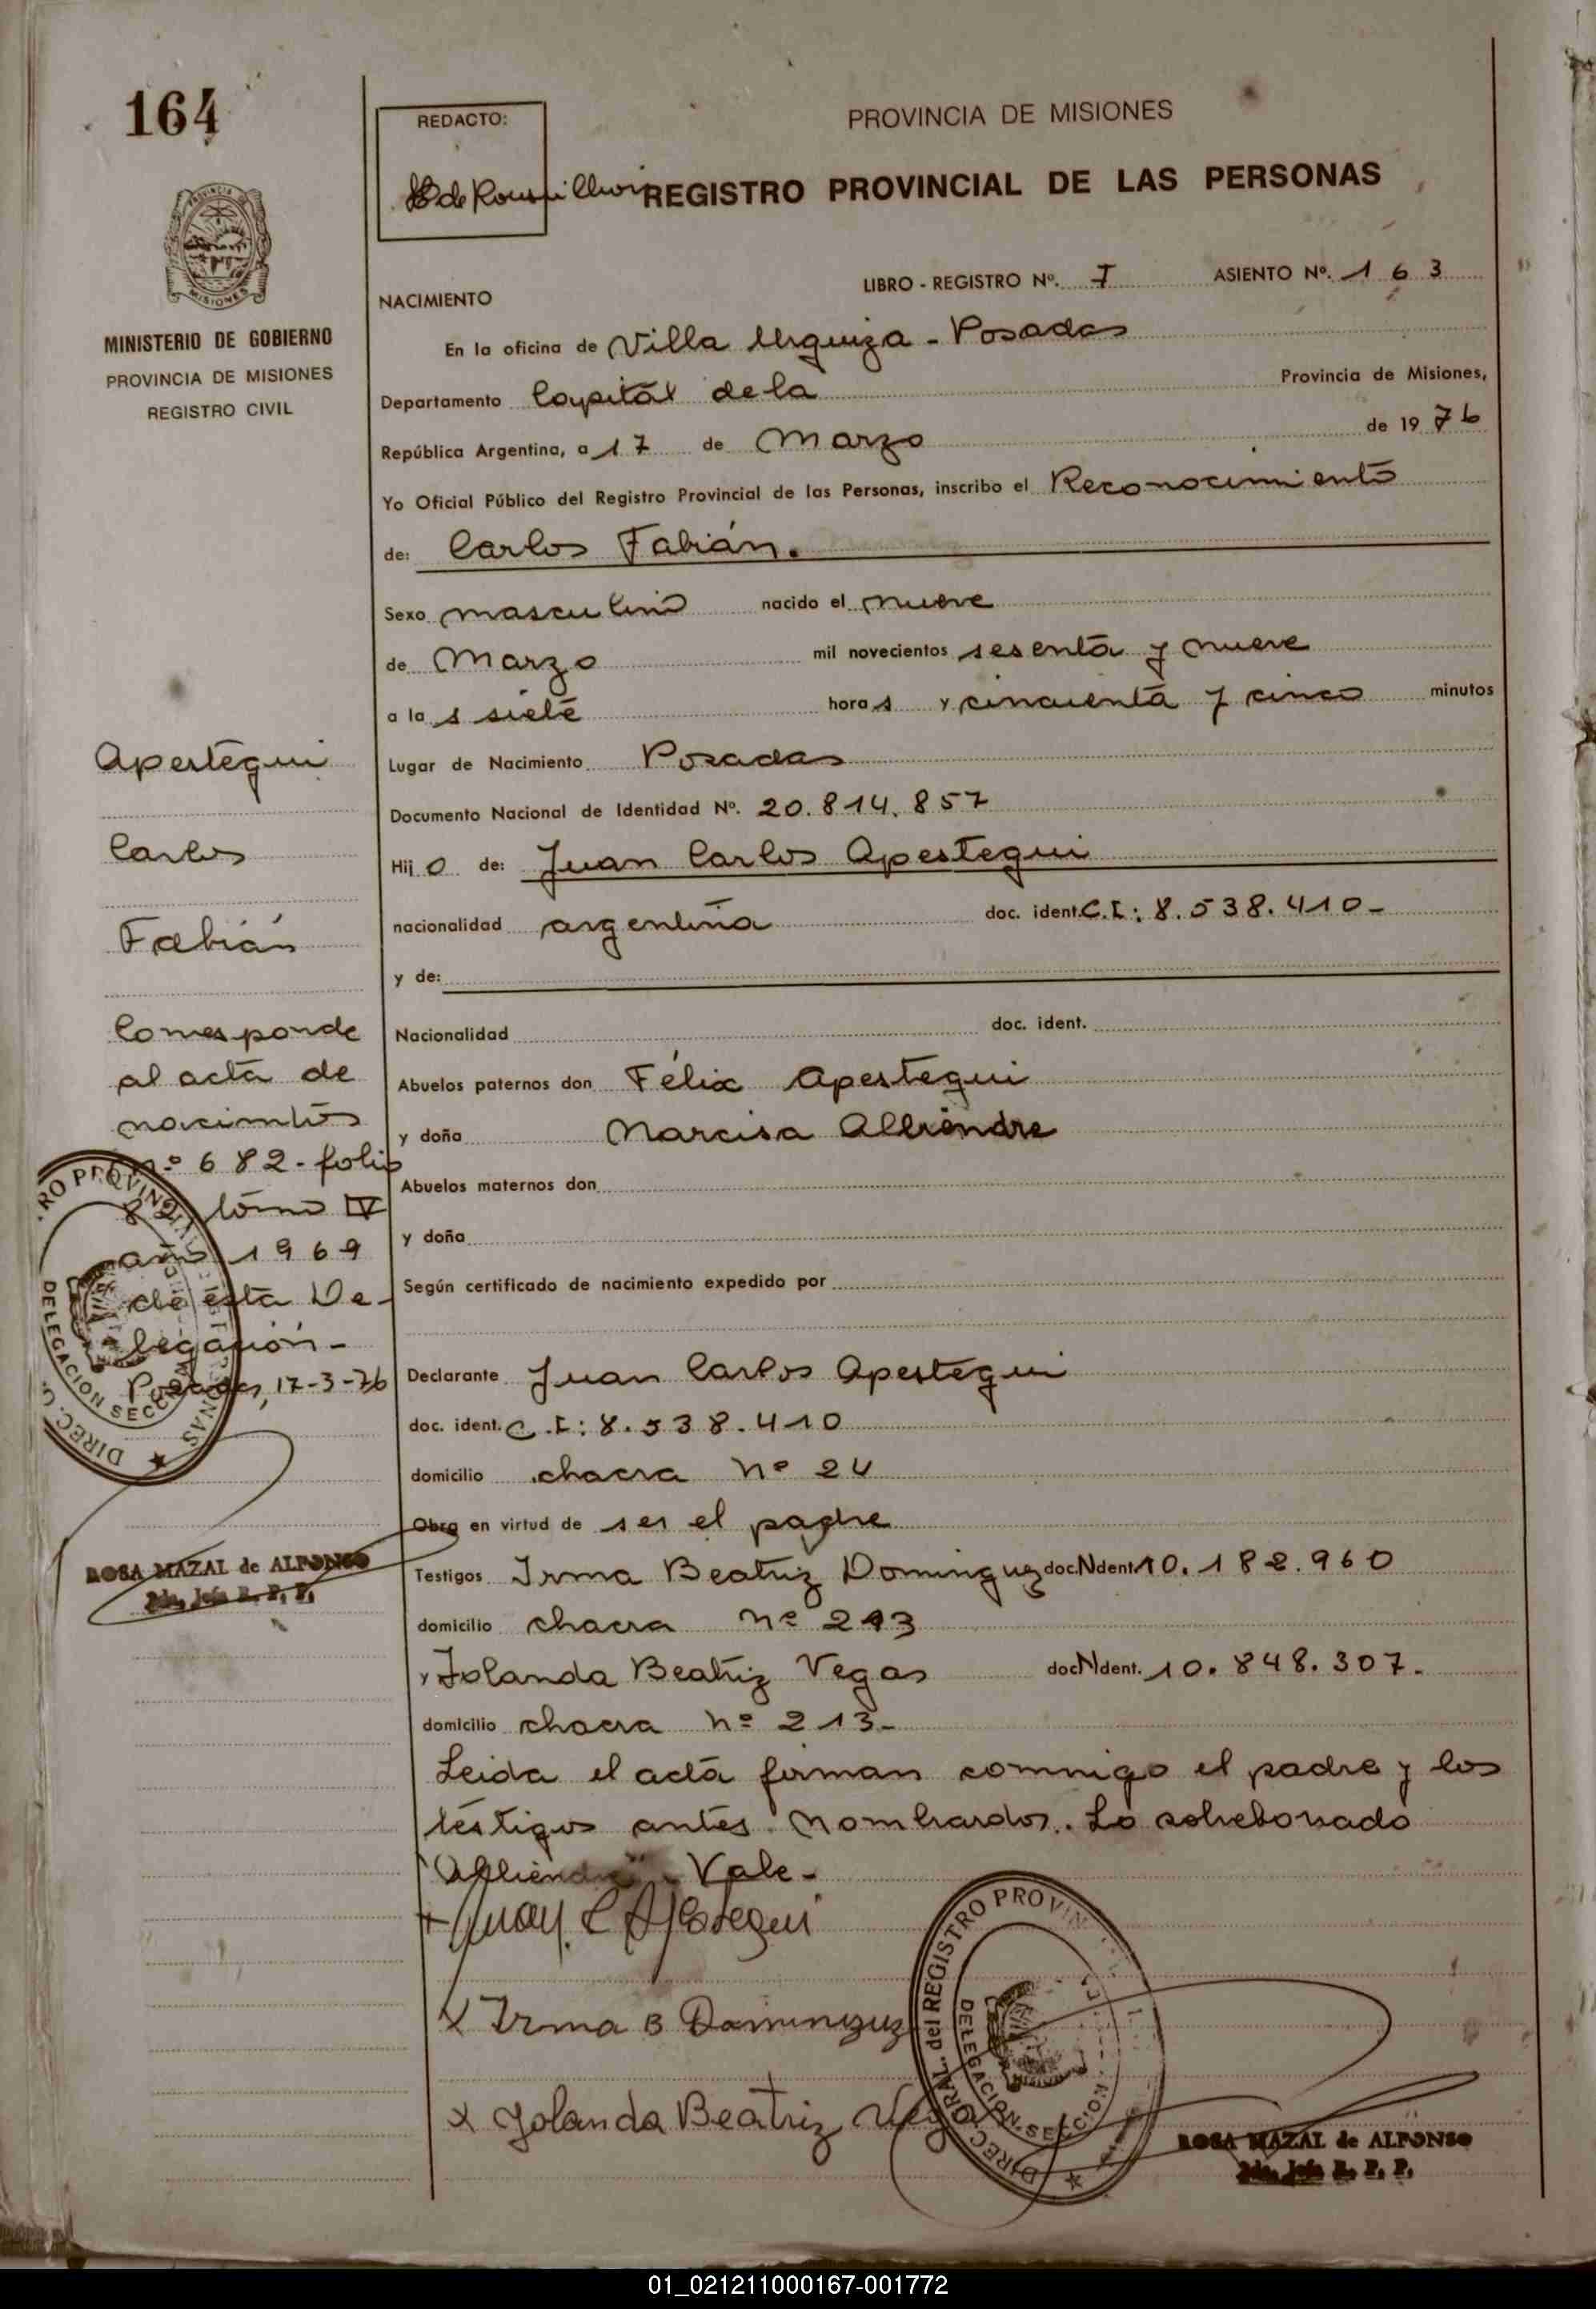 164
REDACTO:
PROVINCIA DE MISIONES
REGISTRO PROVINCIAL DE LAS PERSONAS
MISIONES
MINISTERIO DE GOBIERNO
PROVINCIA DE MISIONES
REGISTRO CIVIL
LIBRO - REGISTRO Nº. I ASIENTO Nº. 163
NACIMIENTO
En la oficina de Villa Urquiza - Posadas
Departamento Capital de la Provincia de Misiones,
República Argentina, a 17 de Marzo de 1976
Yo Oficial Público del Registro Provincial de las Personas, inscribo el Reconocimiento
de: Carlos Fabián.
Sexo masculino nacido el nueve
de Marzo mil novecientos sesenta y nueve
a las siete horas y cincuenta y cinco minutos
Lugar de Nacimiento Posadas
Documento Nacional de Identidad Nº. 20.814.857
Hijo de: Juan Carlos Apestegui
nacionalidad argentina doc. ident. C.I: 8.538.410-
y de:
Nacionalidad doc. ident.
Abuelos paternos don Félix Apestegui
y doña Narcisa Alliendre
Abuelos maternos don
y doña
Según certificado de nacimiento expedido por
Declarante Juan Carlos Apestegui
doc. ident. C.I: 8.538.410
domicilio chacra Nº 24
Obra en virtud de ser el padre
Testigos Irma Beatriz Dominguez doc. Ndent 10.182.960
domicilio chacra Nº 213
y Jolanda Beatriz Vegas doc Ndent. 10.848.307.
domicilio chacra Nº 213-
Leida el acta firman conmigo el padre y los
testigos antes nombrados. Lo sobreborrado
"Alliendre" Vale-
Juan C Apestegui
x Irma B Dominguez
x Jolanda Beatriz
Apestegui
Carlos
Fabián
Corresponde
al acta de
nacimiento
Nº 682- folio
82 tomo IV
año 1969
de esta De-
legación-
Posadas, 17-3-76
ROSA MAZAL de ALFONSO
2da. Jefa R. P. P.
DIREC. GRAL. del REGISTRO PROVIN
DELEGACION SECCION
ROSA MAZAL de ALFONSO
2da. Jefa R. P. P.
01_021211000167-001772